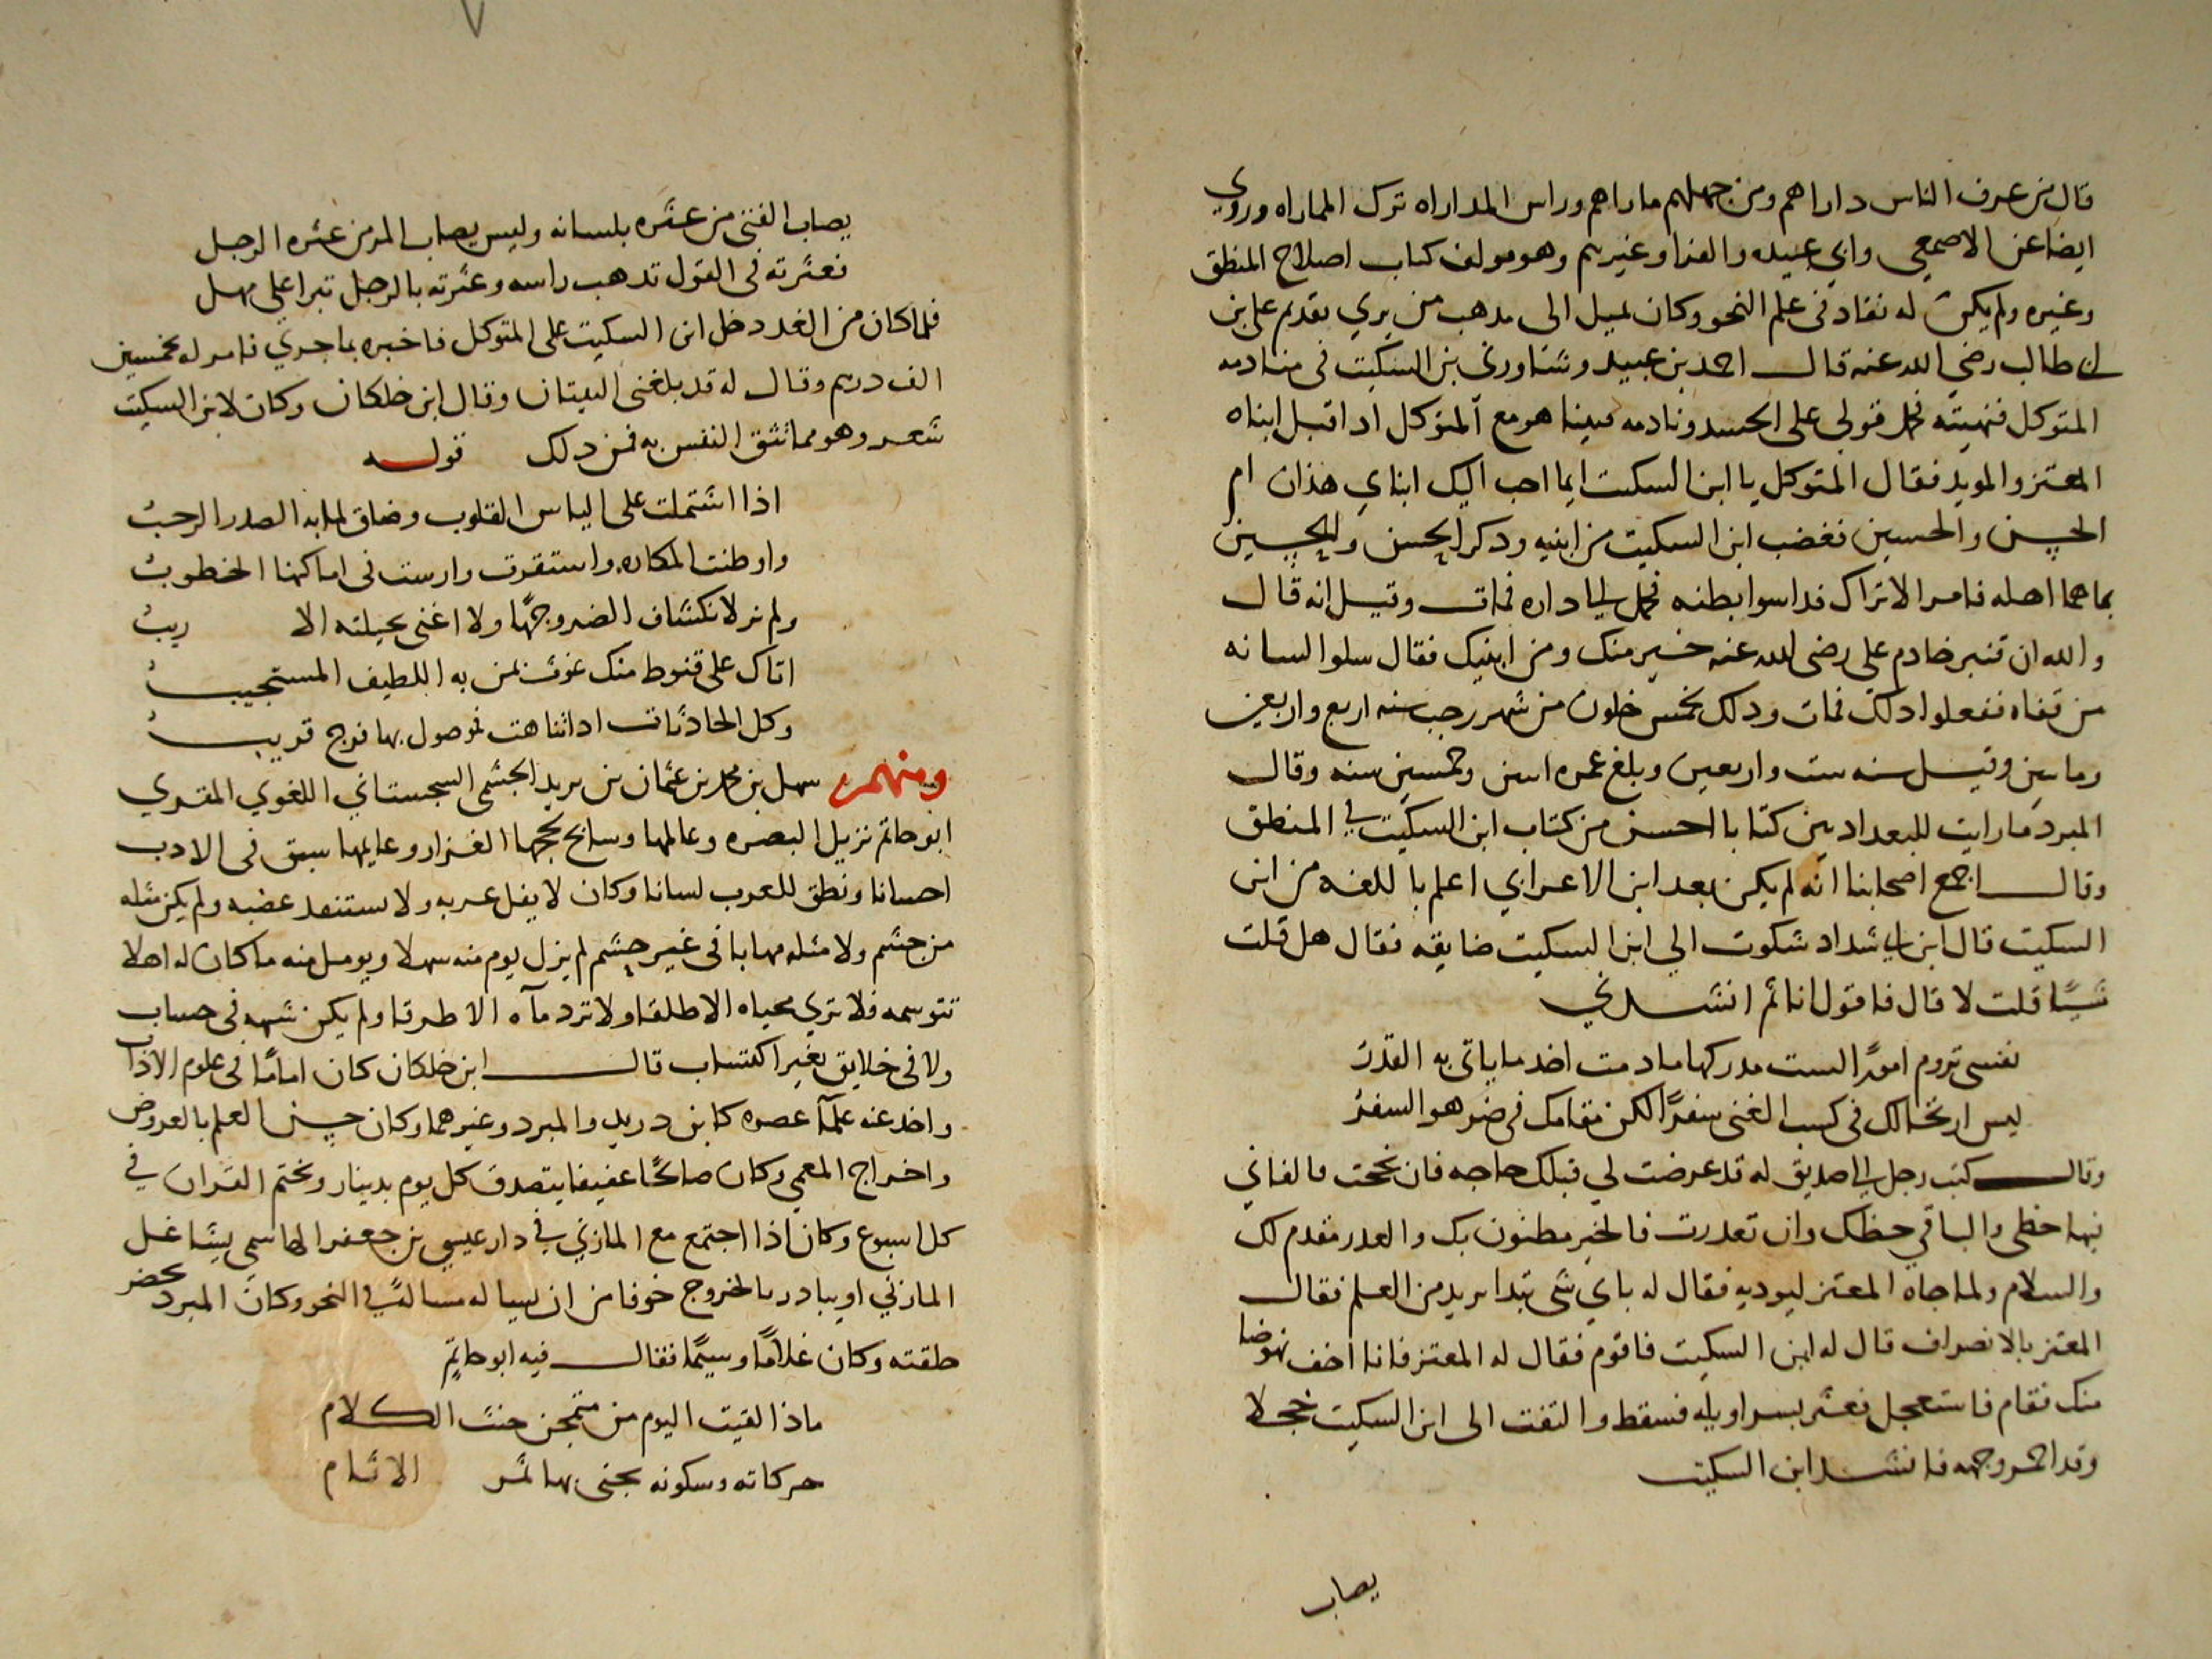 قال من عرف الناس داراهم ومن جهلهم ماراهم وراس المداراه ترك المماراه وروي
ايضا عن الاصمعي وابي عبيده والفرا وغيرهم وهو مولف كتاب اصلاح المنطق
وغيره ولم يكن له نفاد في علم النحو وكان يميل الى مدهب من يري تقديم على بن
ابى طالب رضي الله عنه قال احمد بن عبيد وشاورني بن السكيت في منادمه
المتوكل فنهيته فحمل قولي على الحسد ونادمه فبينا هو مع المتوكل ادا قبل ابناه
المعتز والمويد فقال المتوكل يا ابن السكيت ايما احب اليك ابناي هذان ام
الحسن والحسين فغضب ابن السكيت من ابنيه ودكر الحسن والحسين
بما هما اهله فامر الاتراك فداسوا بطنه فحمل الى داره فمات وقيل انه قال
والله ان قنبر خادم على رضى الله عنه خير منك ومن ابنيك فقال سلوا لسانه
من قفاه ففعلوا دلك فمات ودلك لخمس خلون من شهر رجب سنه اربع واربعين
وماتين وقيل سنه ست واربعين وبلغ عمره وخمسين سنه وقال
المبرد مارايت للبعداديين كتابا احسن من كتاب ابن السكيت في المنطق
وقال اجمع اصحابنا انه لم يكن بعد ابن الاعرابي اعلم باللغه من ابن
السكيت قال ابن ابي شداد شكوت الي ابن السكيت ضايقه فقال هل قلت
شيًا قلت لا قال فاقول انا ثم انشدني
نفسى تروم امورًا لست مدركها مادمت احدر ماياتى به القدر
ليس ارتحالك في كسب الغنى سفرًا لكن مقامك في ضر هو السفر
وقال كتب رجل الى صديق له قد عرضت لي قبلك حاجه فان نجحت فالفاني
منها حظى والباقي حظك وان تعدرت فالخير مظنون بك والعدر مقدم لك
والسلام ولما جاه المعتز ليوديه فقال له باي شى تبدا يريد من العلم فقال
المعتز بالانصراف قال له ابن السكيت فاقوم فقال له المعتز فانا اخف نهوضا
منك فقام فاستعجل فعثر بسراويله فسقط والتفت الى ابن السكيت خجلا
وقد احمر وجهه فانشد ابن السكيت
يصاب
يصاب الفتى من عثره بلسانه وليس يصاب المر من عثره الرجل
فعثرته في القول تدهب راسه وعثرته بالرجل تبرا على مهل
فلما كان من الغد دخل ابن السكيت على المتوكل فاخبره بما جري فامر له بخمسين
الف درهم وقال له قد بلغنى البيتان وقال ابن خلكان وكان لابن السكيت
شعر وهو مما تثق النفس به فمن دلك قوله
اذا اشتملت على الياس القلوب وضاق لما به الصدر الرحيب
واوطنت المكاره واستقرت وارست في اماكنها الخطوب
ولم نر لانكشاف الضر وجهًا ولا اغنى بحيلته الا ريب
اتاك على قنوط منك غوث يمن به اللطيف المستجيب
وكل الحادثات ادا تناهت فموصول بها فرج قريب
ومنهم سهل بن محمد بن عثمان بن يزيد الجشمى السجستاني اللغوي المقري
ابو حاتم نزيل البصره وعالمها وسابح لججها الغزار وعايمها سبق في الادب
احسانا ونطق للعرب لسانا وكان لا يفل عربه ولا ستنفد عضبه ولم يكن مثله
من جشم ولا مثله مهابا في غير حشم لم يزل يوم منه سهلا ويومل منه ماكان له اهلا
تتوسمه فلا تري محياه الا طلقا ولا ترد مآه الا طرقا ولم يكن شبهه في حساب
ولا في خلايق بغير اكتساب قال ابن خلكان كان امامًا في علوم الاداب
واخد عنه علمآ عصره كابن دريد والمبرد وغيرهما وكان حسن العلم بالعروض
واخراج المعمي وكان صالحًا عفيفا يتصدق كل يوم بدينار ويختم القران في
كل اسبوع وكان اذا اجتمع مع المازني في دار عيسي بن جعفر الهاشمي يتشاغل
المازني او يبادر بالخروج خوفا من ان يساله مسالة في النحو وكان المبرد يحضر
حلقته وكان غلامًا وسيمًا فقال فيه ابو حاتم
ماذا لقيت اليوم من متمجن خنث الكلام
حركاته وسكونه يجنى بها ثمر الاثام